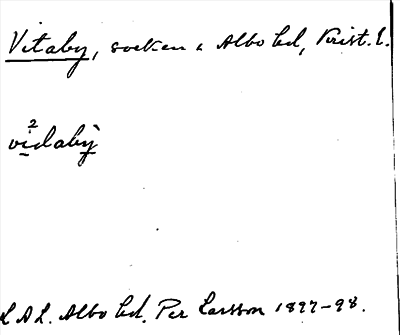 Vitaby, socken i Albo hd, Krist. l.
vi²dabỳ
L.A.L. Albo hd. Per Larsson 1897-98.